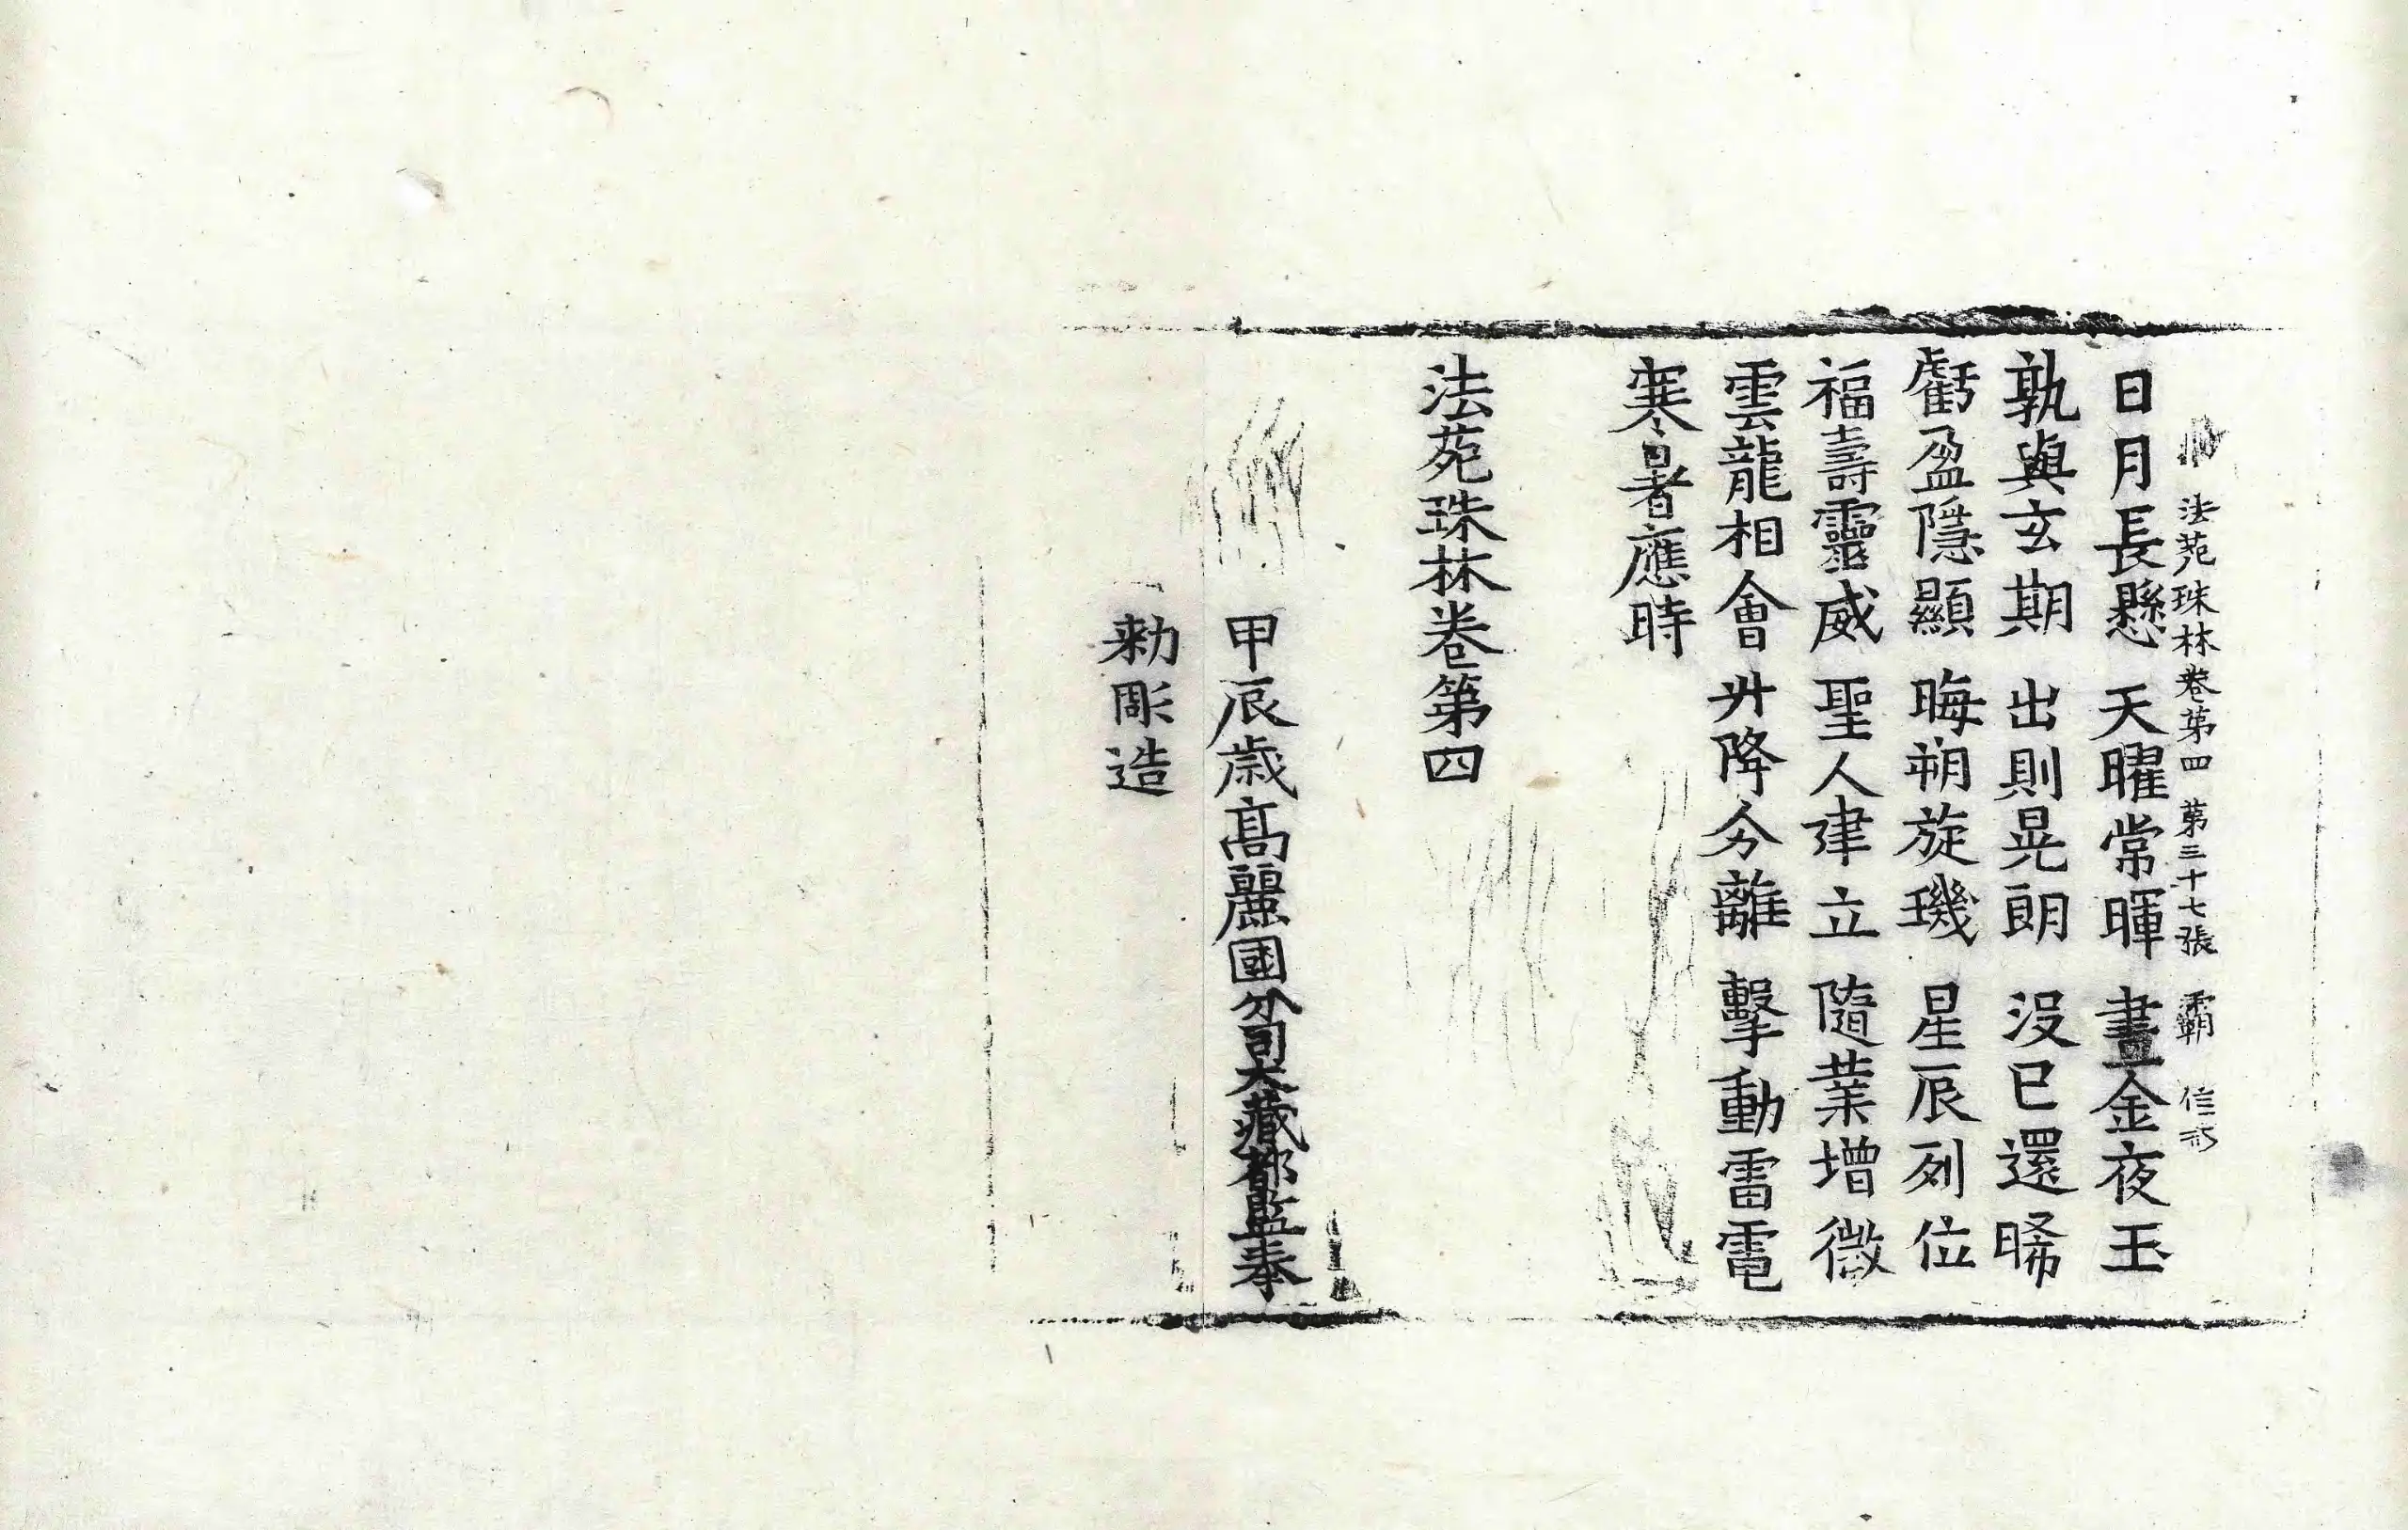 法苑珠林卷第四 第三十七張 覇
日月長懸 天曜常暉 晝金夜玉
孰與玄期 出則晃朗 没已還晞
虧盈隱顯 晦朔旋璣 星辰列位
福壽靈威 聖人建立 隨業增微
雲龍相會 升降分離 擊動雷電
寒暑應時
法苑珠林卷第四
甲辰歲高麗國分司大藏都監奉
勑彫造